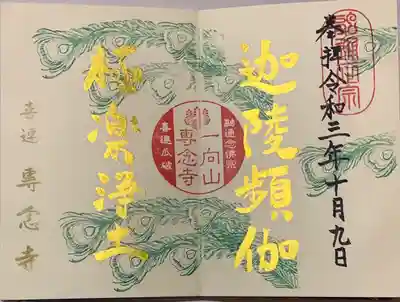 奉拝 令和三年十月九日
迦陵頻伽
融通念佛宗
一向山
專念寺
喜連瓜破
極楽浄土
喜連 專念寺